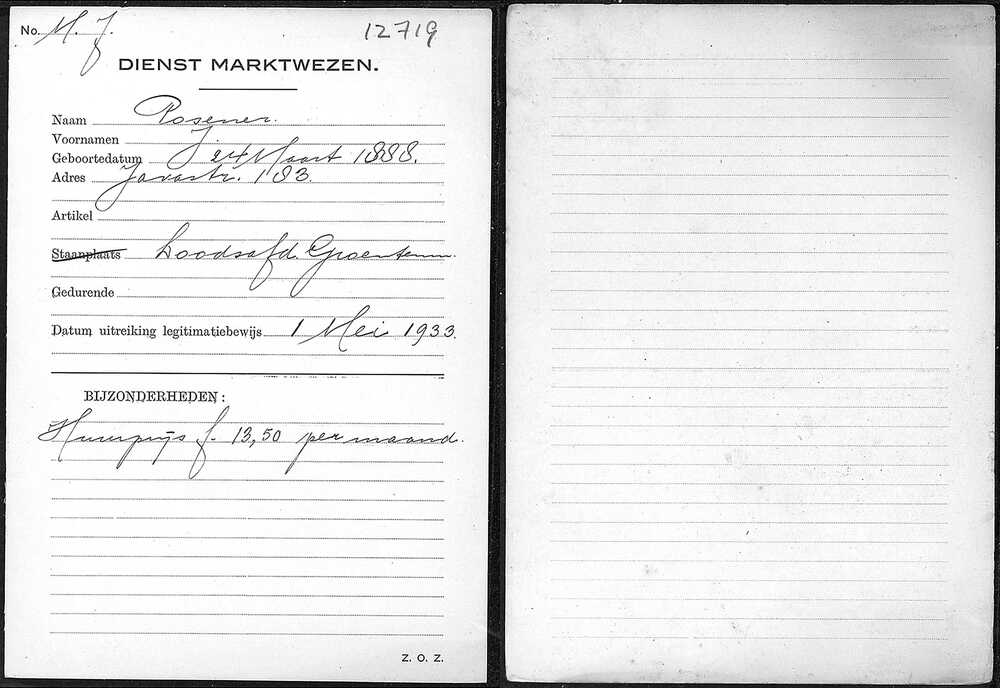 No. M. J.
12719
DIENST MARKTWEZEN.
Naam Rosener.
Voornamen J.
Geboortedatum 24 Maart 1888.
Adres Javastr. 183.
Artikel
Staanplaats Loodsafd. Groenten
Gedurende
Datum uitreiking legitimatiebewijs 1 Mei 1933.
BIJZONDERHEDEN:
Huurprijs f. 13,50 per maand.
Z. O. Z.